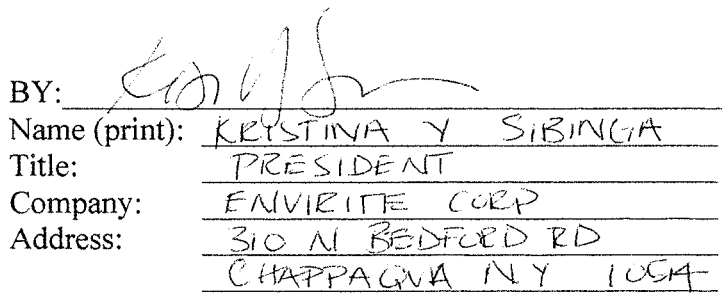 BY:
Name (print): KRISTINA Y SIBINGA
Title: PRESIDENT
Company: ENVIRITE CORP
Address: 310 N BEDFORD RD
CHAPPAQUA NY